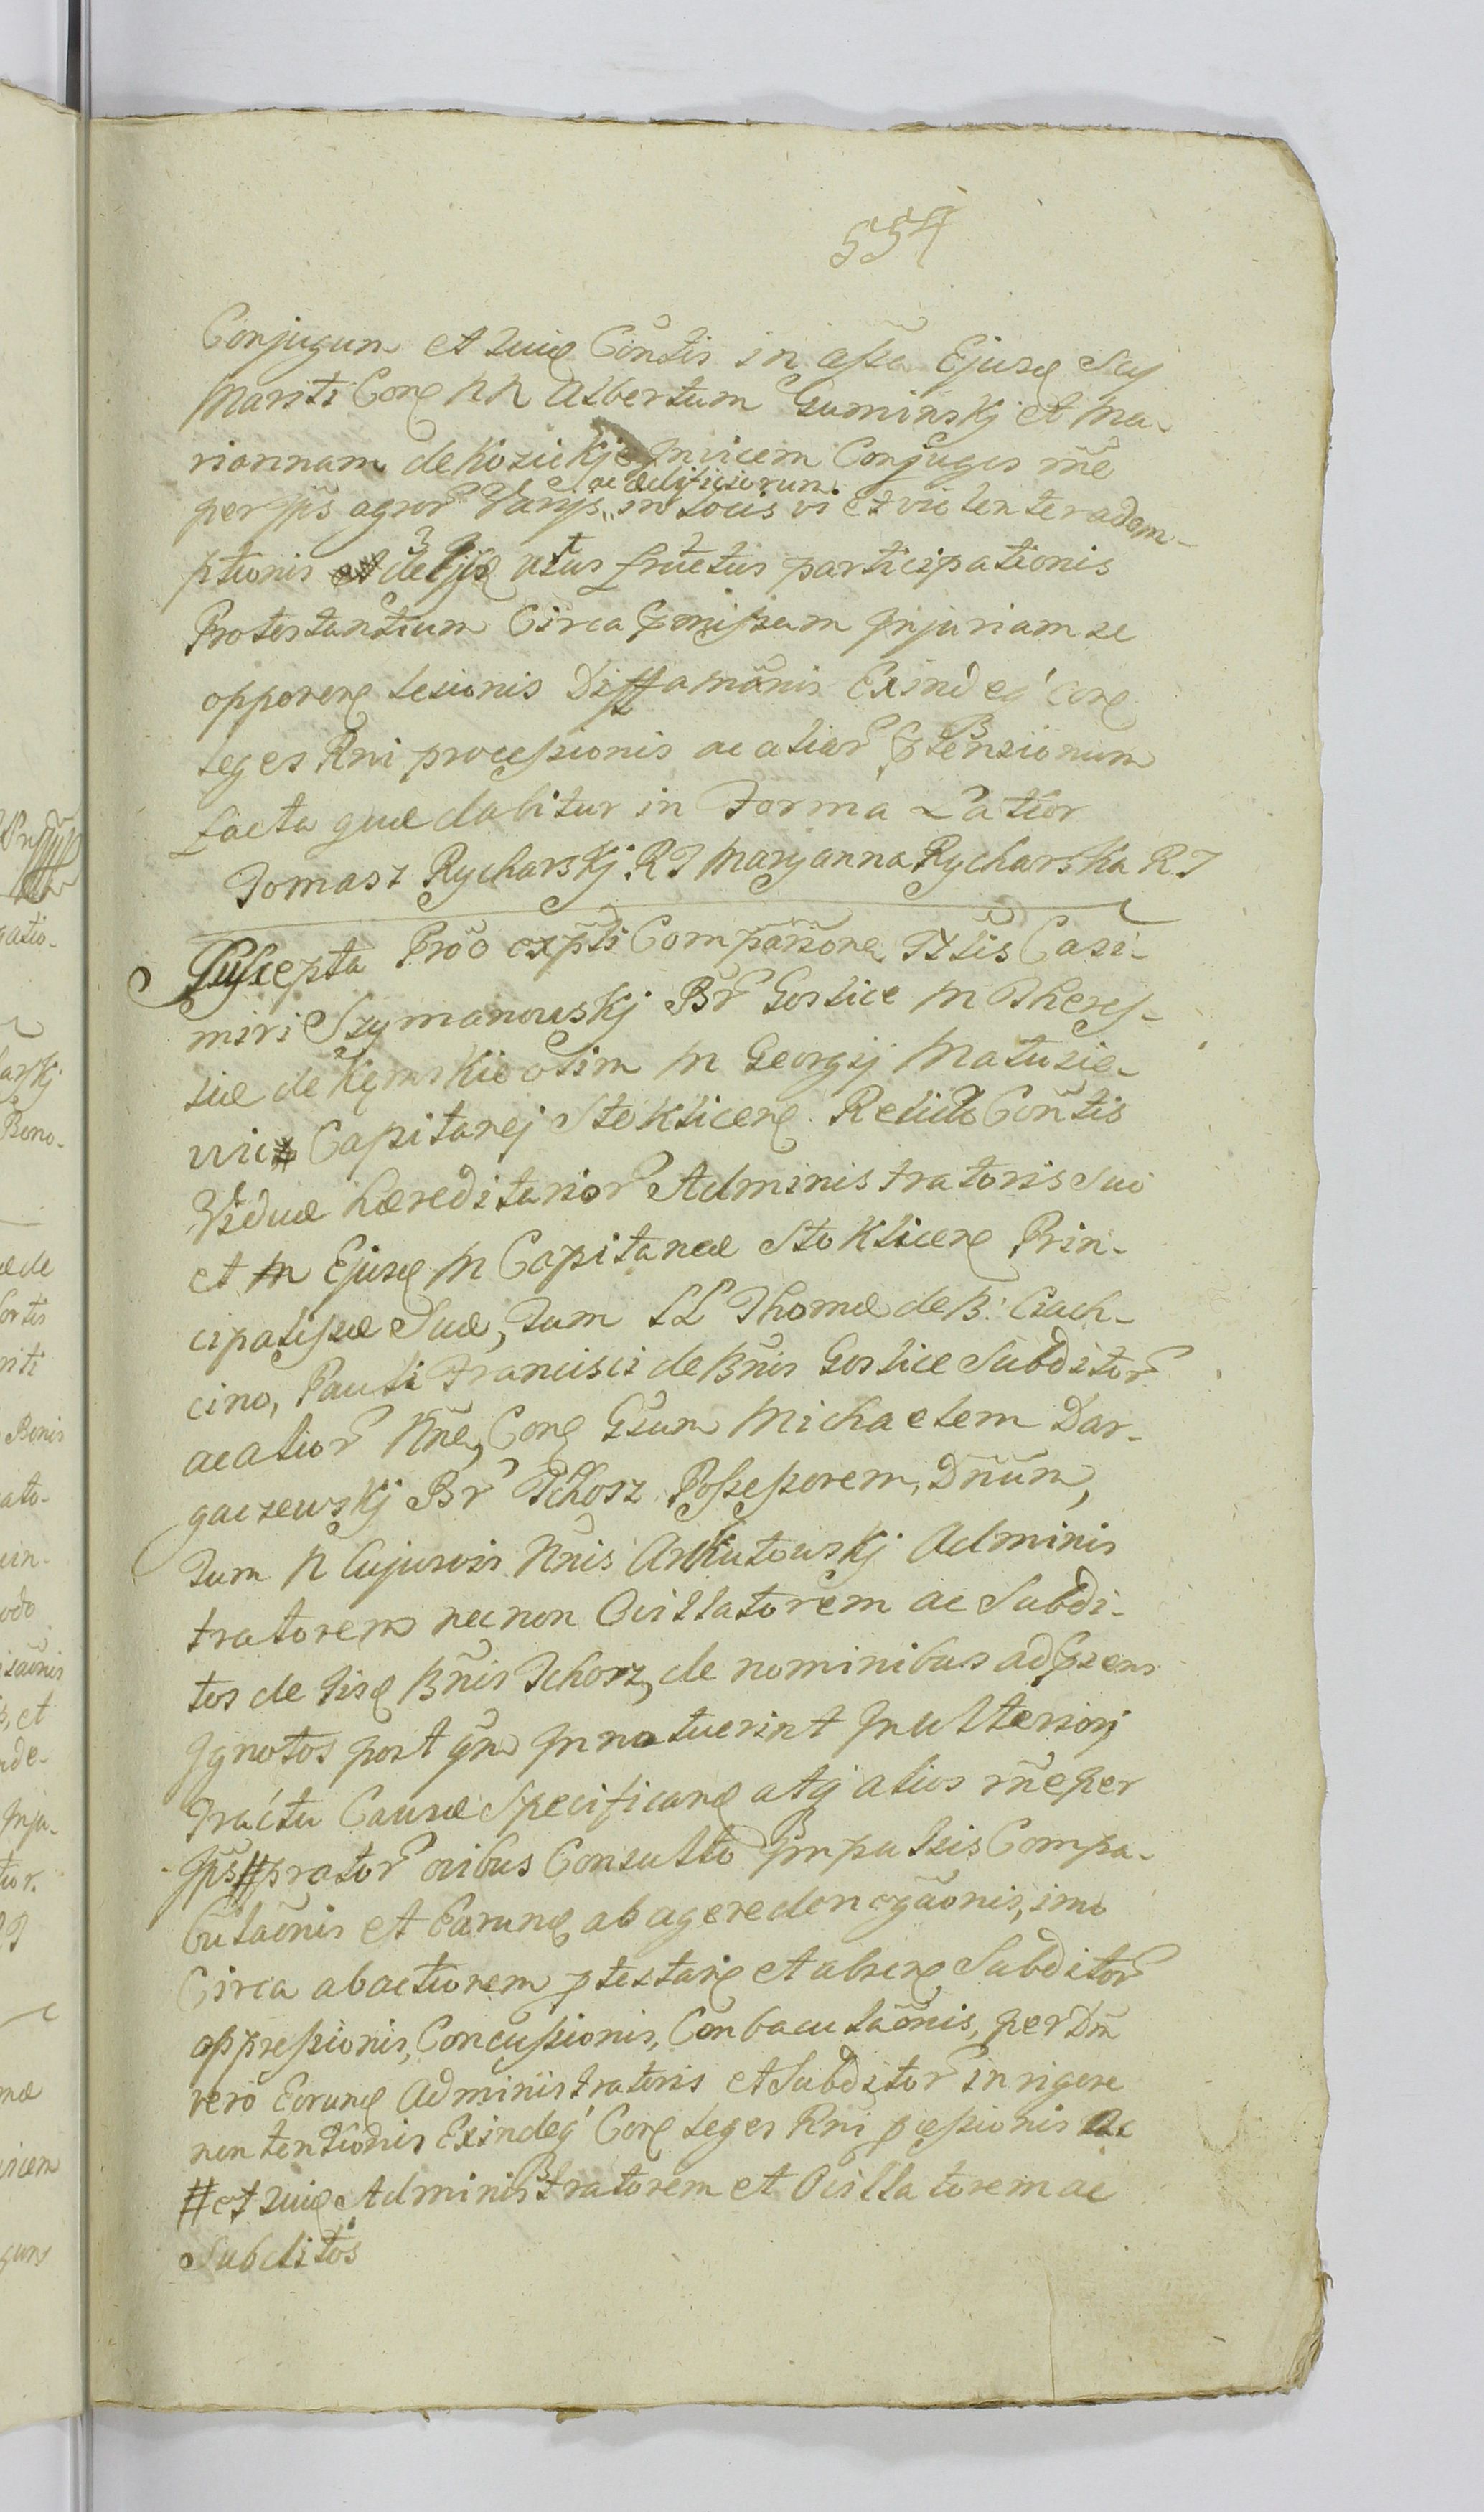 554
Conjugum et suae Cōntis in assa Ejusd Sui
Mariti Cōrē NN Albertum Guminskj et Ma-
riannam de Kozickje Invicem Conjuges rñe
per Ips agror Varijs ac aedificiorum in Locis vi et violenter adem-
ptionis de ijsd usus fructus participationis
Protestantium Circa pmissam Injuriam se
opponere lesionis Diffamãnis Exindeq' Core
leges Rni processionis ac alior ptensionum
facta quae dabitur in Forma Latior
Tomasz Rycharskj RJ Maryanna Rycharska RJ
Suscepta Prõo expti Comparsone Ittis Casi-
miri Szymanowskj Br Goslice M Theres-
siae de Kęmskie olim M Georgij Matusie-
wic Capitanej Stokliceñ Relicto Cōntis
Viduae haereditarior Administratoris sui
et Ejusd M Capitaneae Stokliceñ Prin-
cipalissae Suae, Tum LL Thomae de B: Ciach-
cino, Pauli Francisci de Bñis Goslice Subditor
ac alior Nñe, Corē Gsum Michaelem Dar-
gaczewskj Br Tchorz Possessorem, Dñum,
Tum N Cujusvis Nñis Arkutowskj Adminis
tratorem necnon Ovillatorem ac Subdi-
tos de Iisd Bñis Tchorz, de nominibus ad psens
Ignotos post qm Innotuerint In ulteriorj
Tractu Causae Specificand atq' alios rñe per
Ips # prator ovibus Consulto Impulsis Compa-
culaõnis et Earund ab agere denegaõnis, imo
Circa abactionem ptestare et absere Subditor
oppressionis, Concussionis, Conbaculaõnis, per Dñ
vero Eorund Administratoris et Subditor in rigore
non tentionis Exindeq' Core leges Rni pcessionis ac
# et suae Administratorem et Ovillatorem ac
Subditos